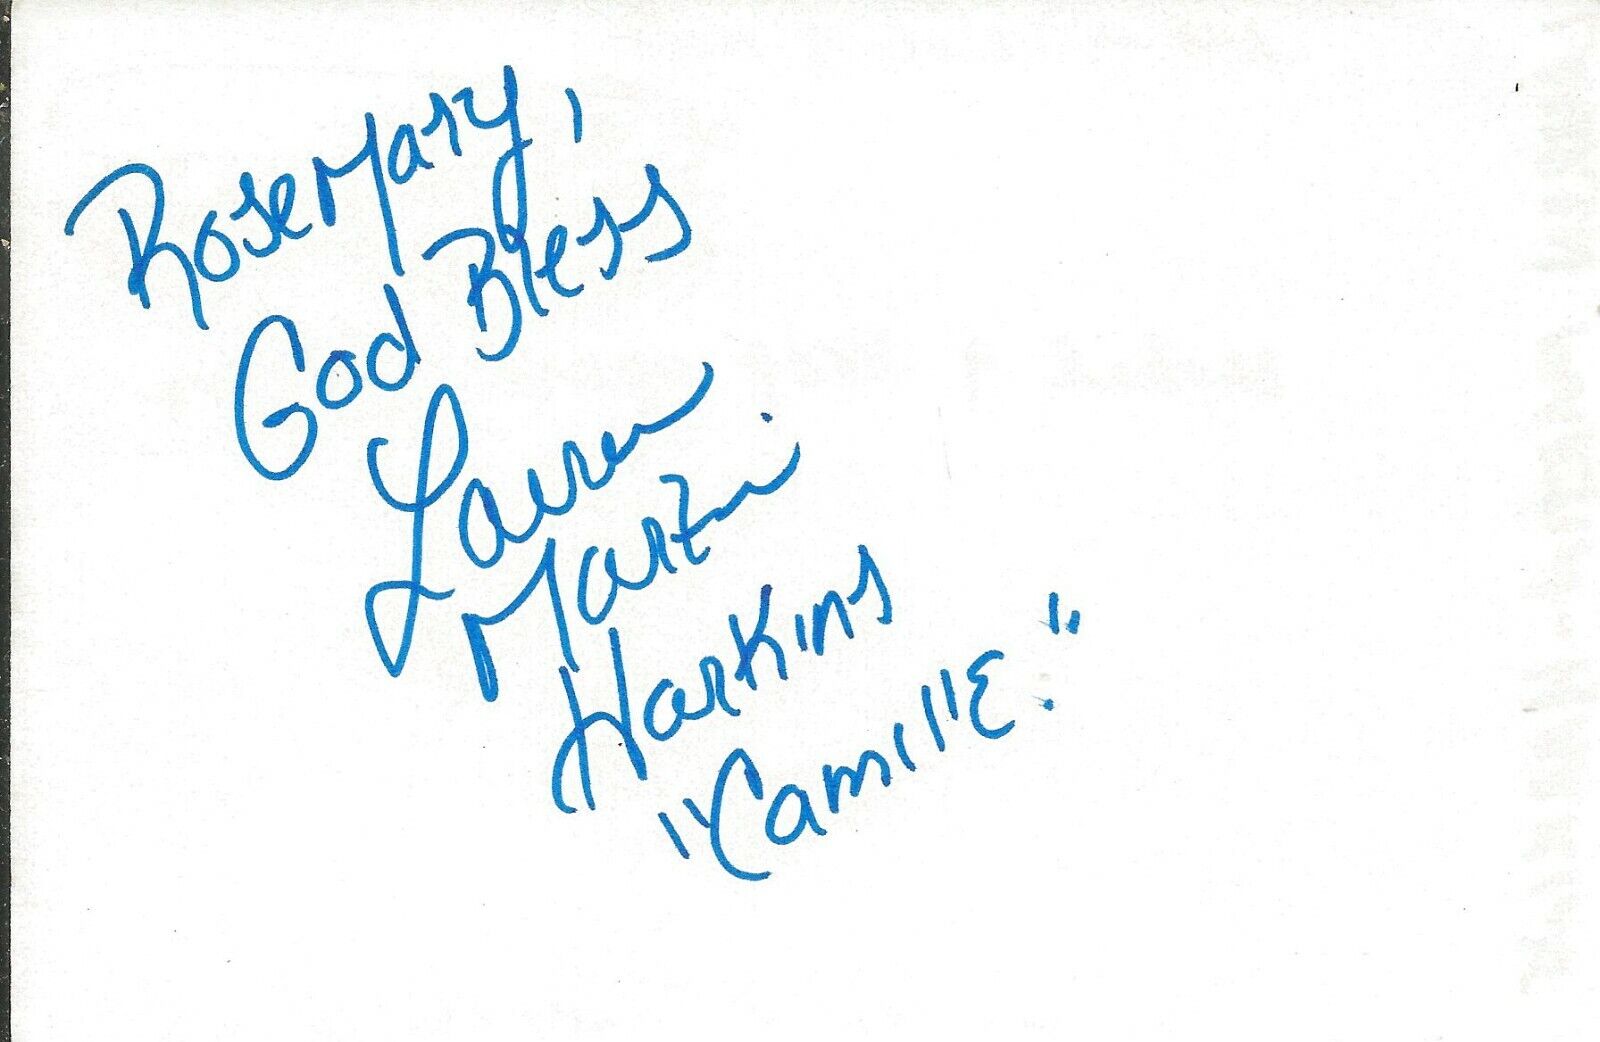 Rosemary,
God Bless
Lauren
Marzin
Harkins
"Camille."